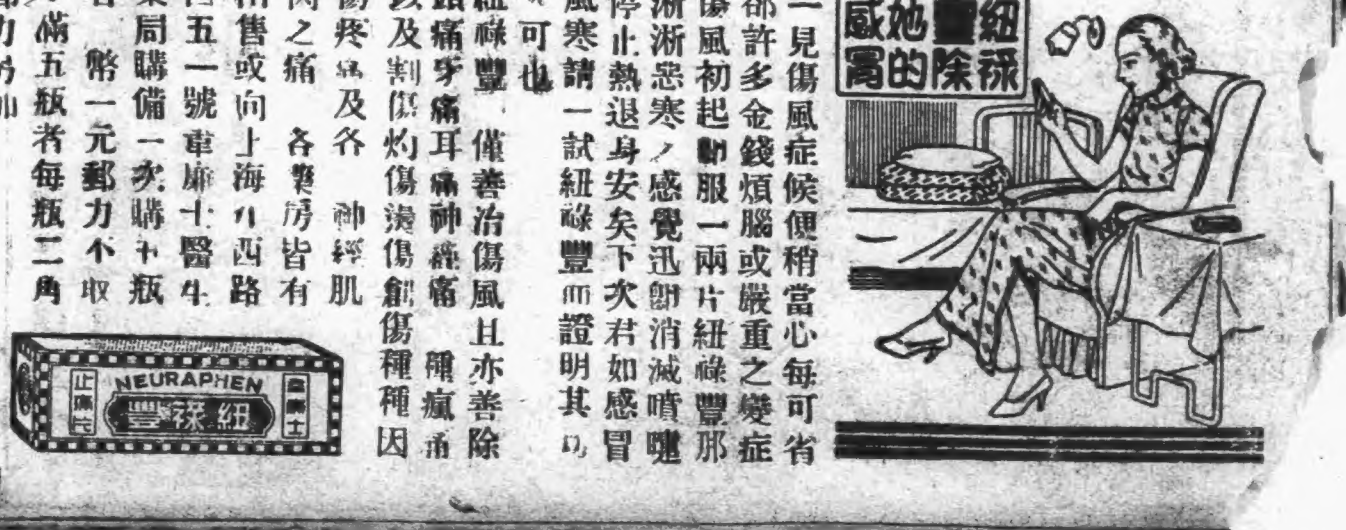 紐祿
豐除
她的
感冒
一見傷風症候便稍當心每可省
卻許多金錢煩腦或嚴重之變症
傷風初起即服一兩片紐祿豐那
淅淅惡寒之感覺迅即消滅噴嚏
停止熱退身安矣下次君如感冒
風寒請一試紐祿豐而證明其功
可也
紐祿豐 僅善治傷風且亦善除
頭痛牙痛耳痛神經痛 種瘋痛
以及割傷灼傷燙傷創傷種種因
傷疼痛及各 神經肌
肉之痛 各藥房皆有
售或向上海 西路
五一號韋廉士醫生
局購備一次購 瓶
幣一元郵力不取
滿五瓶者每瓶二角
力另加
韋廉士
NEURAPHEN
紐祿豐
止痛片